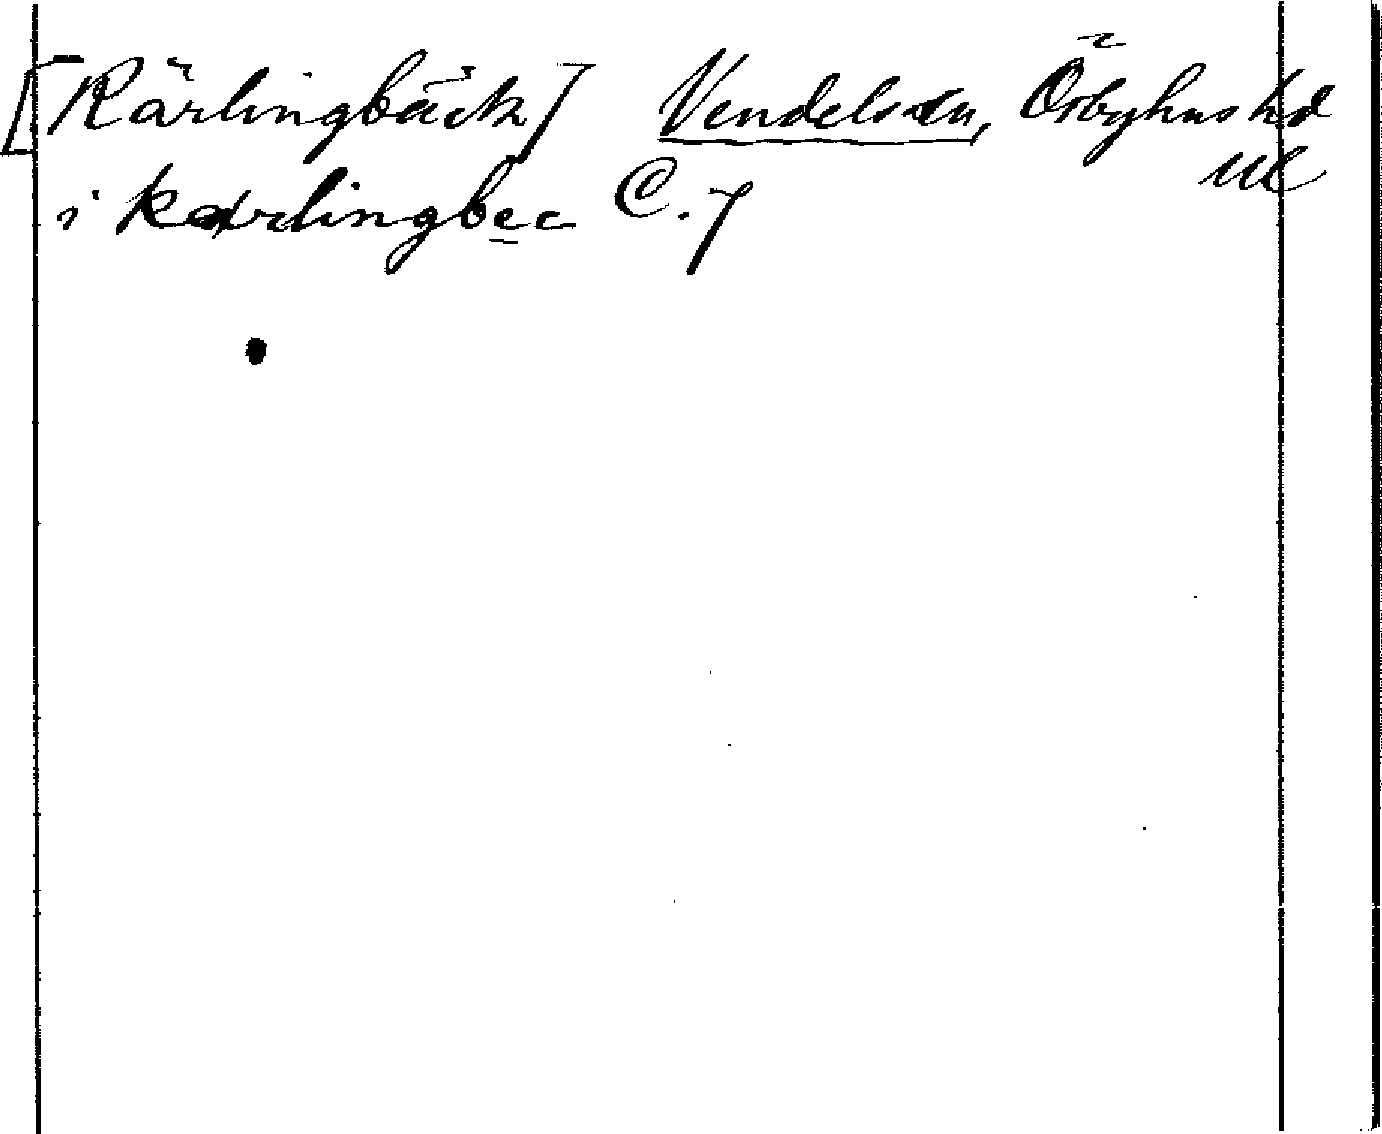 [Kärlingbäck] Vendels sn, Örbyhus hd
Ul
i kærlingbec C. 7